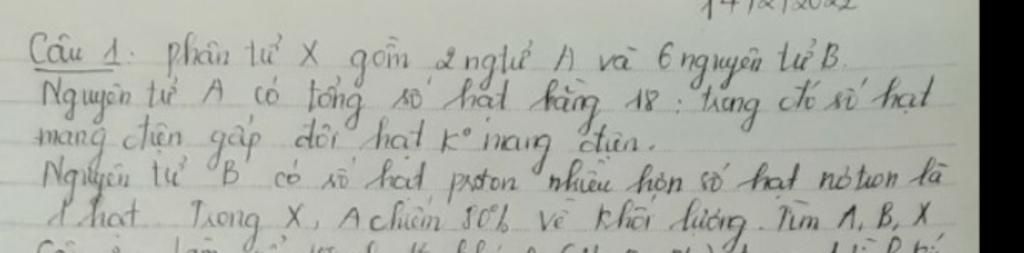 14/2/2022
Câu 1: Phân tử X gồm 2 ngtử A và 6 nguyên tử B.
Nguyên tử A có tổng số hạt bằng 18: trong đó số hạt
mang điện gấp đôi hạt k° mang điện.
Nguyên tử B có số hạt proton nhiều hơn số hạt nơtron là
1 hạt. Trong X, A chiếm 80% về khối lượng. Tìm A, B, X